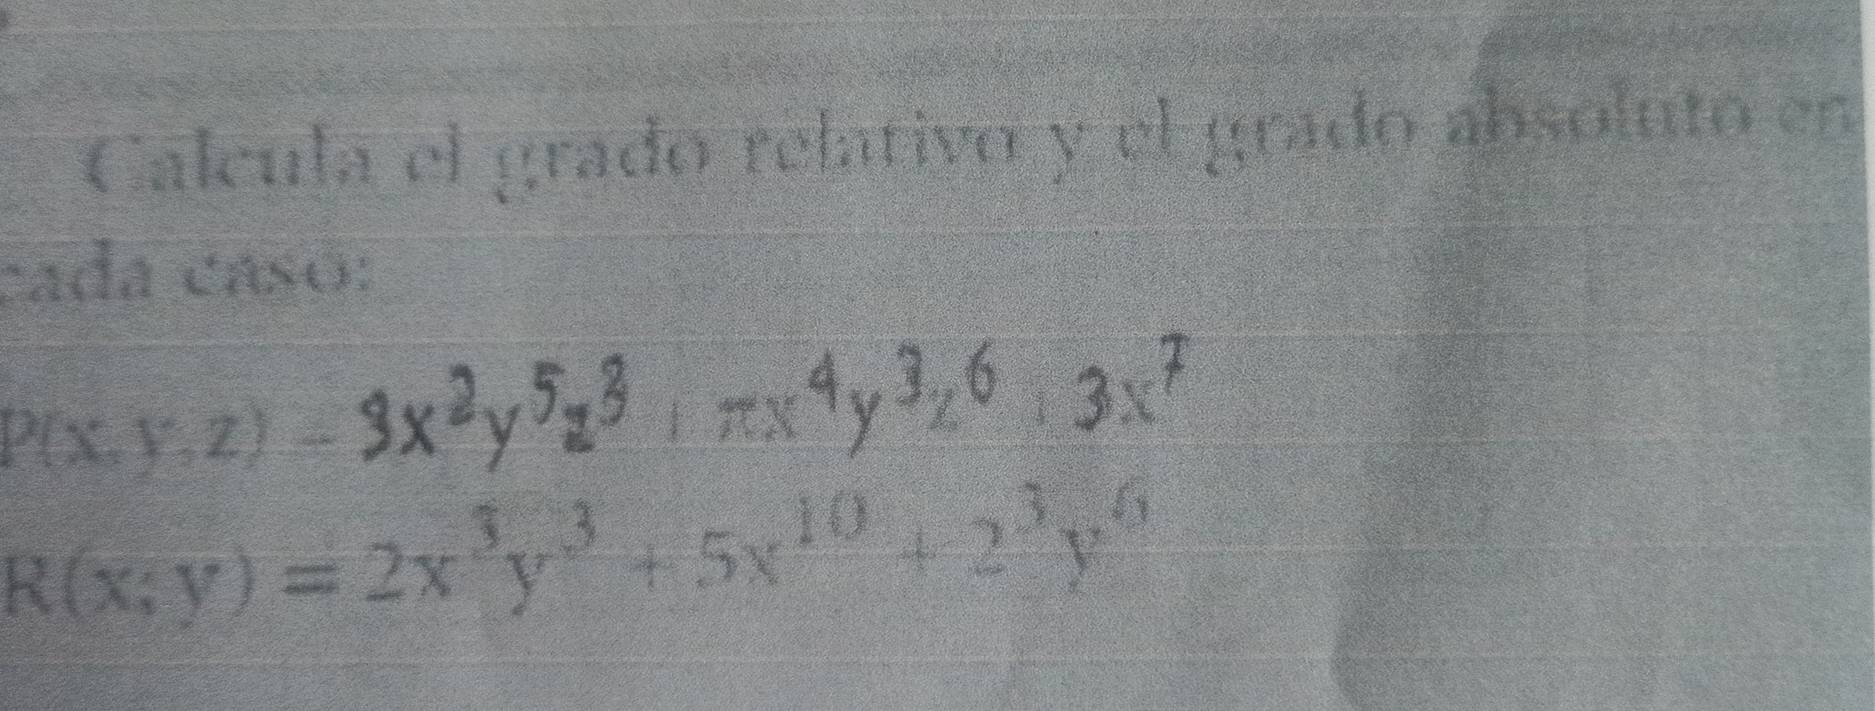 Calcula el grado relativo y el grado absoluto en
cada caso:
P(x,y,z) = 9x²y⁵z⁸ + πx⁴y³z⁶ + 3x⁷
R(x; y) = 2x³y³ + 5x¹⁰ + 2³y⁶